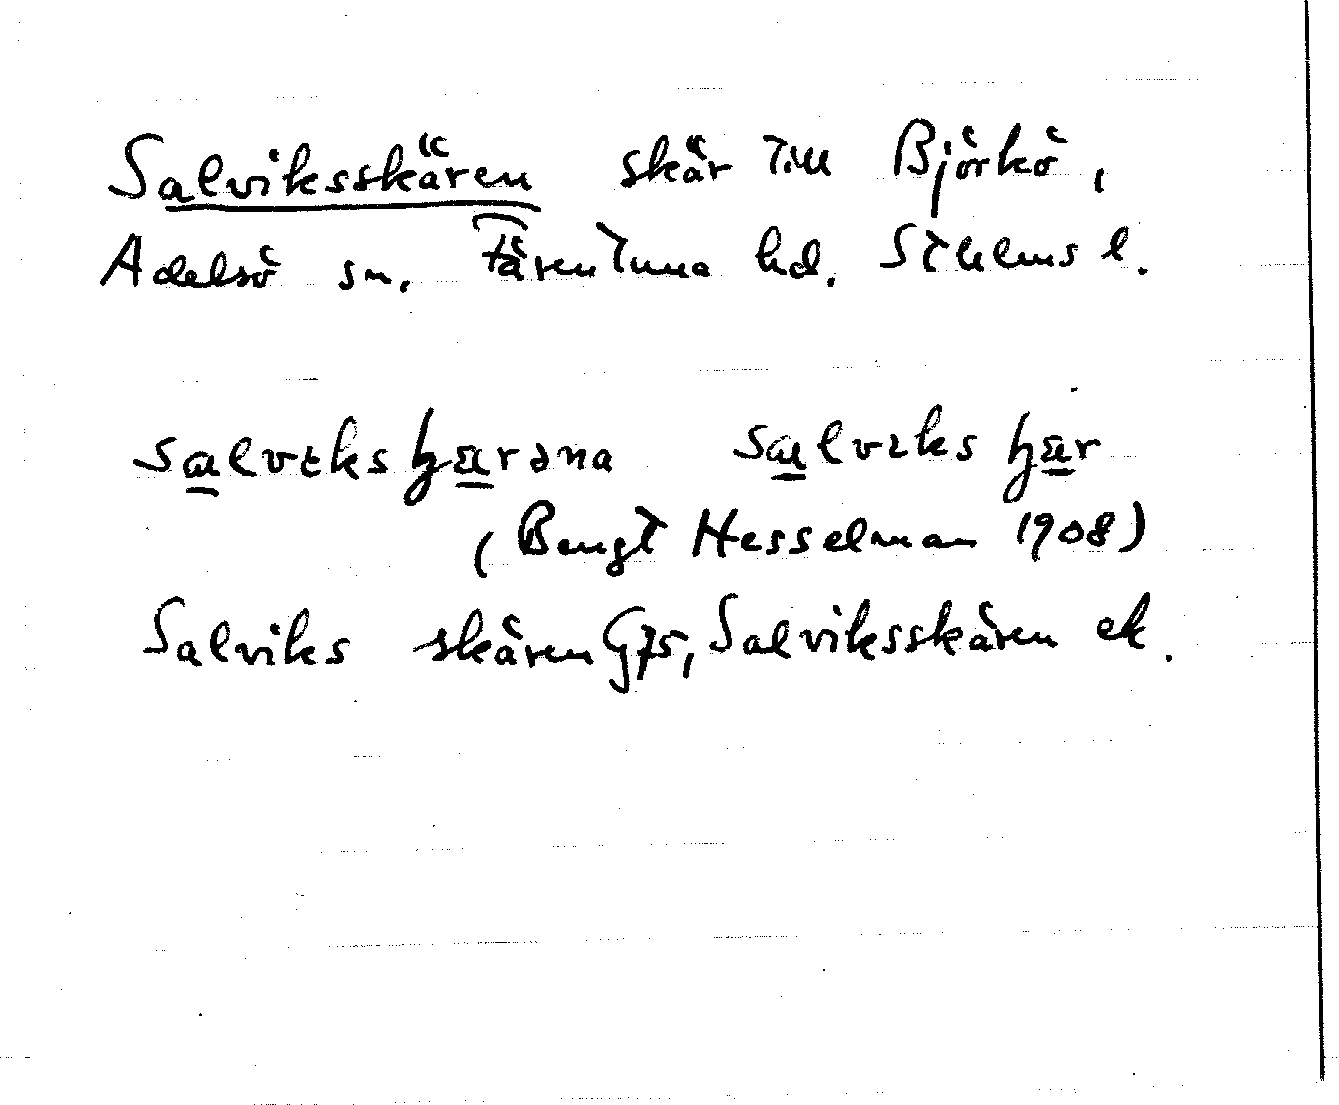 Salviksskären skär till Björkö,
Adelsö sn. Färentuna hd. Sthlms l.
salvɩksʃärəna salvɩksʃär
(Bengt Hesselman 1908)
Salviks skären G75, Salviksskären ek.